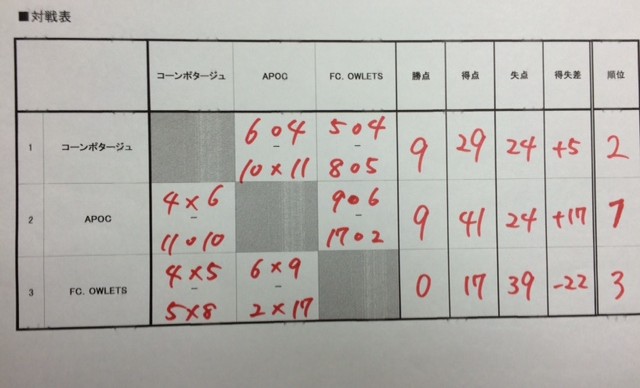 ■対戦表
コーンポタージュ APOC FC. OWLETS 勝点 得点 失点 得失差 順位
1 コーンポタージュ 6○4 - 10×11 5○4 - 8○5 9 29 24 +5 2
2 APOC 4×6 - 11○10 9○6 - 17○2 9 41 24 +17 1
3 FC. OWLETS 4×5 - 5×8 6×9 - 2×17 0 17 39 -22 3